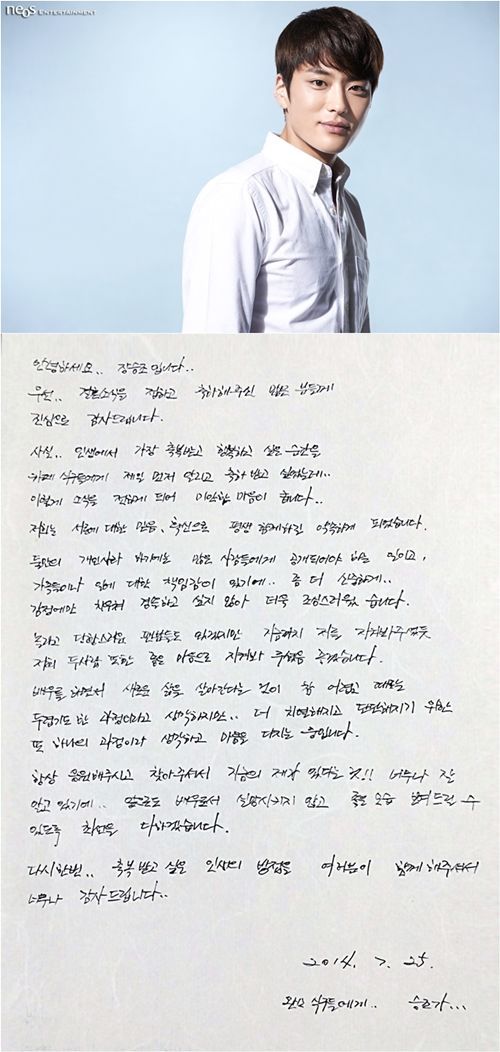 neos ENTERTAINMENT
안녕하세요.. 장승조입니다..
우선.. 결혼소식을 접하고 축하해주신 많은 분들께
진심으로 감사드립니다.
사실.. 인생에서 가장 축복받고 행복하고 싶은 순간을
카페 식구들에게 제일 먼저 알리고 축하 받고 싶었는데..
이렇게 소식을 전하게 되어 미안한 마음이 큽니다..
저희는 서로에 대한 믿음, 확신으로 평생 함께하길 약속하게 되었습니다.
둘만의 개인사라 하기에는 많은 사람들에게 공개되어야 하는 일이고,
가족들이나 일에 대한 책임감이 있기에.. 좀 더 신중하게..
감정에만 치우쳐 결속하고 싶지 않아 더욱 조심스러웠습니다.
놀라고 당황스러운 분들도 있겠지만 지금까지 저를 지켜봐주셨듯
저희 두사람 또한 좋은 마음으로 지켜봐 주셨음 좋겠습니다.
배우를 하면서 새로운 삶을 살아간다는 것이 참 어렵고 때로는
두렵기도 한 과정이라고 생각하지만.. 더 치열해지고 단단해지기 위한
또 하나의 과정이라 생각하고 마음을 다지는 중입니다.
항상 응원해주시고 찾아주셔서 지금의 제가 있다는 것!! 너무나 잘
알고 있기에.. 앞으로도 배우로서 실망시키지 않고 좋은 모습 보여드릴 수
있도록 최선을 다하겠습니다.
다시한번.. 축복 받고 싶은 인생의 방점을 여러분이 함께 해주셔서
너무나 감사드립니다..
2014. 7. 25.
완소 식구들에게.. 승조가...